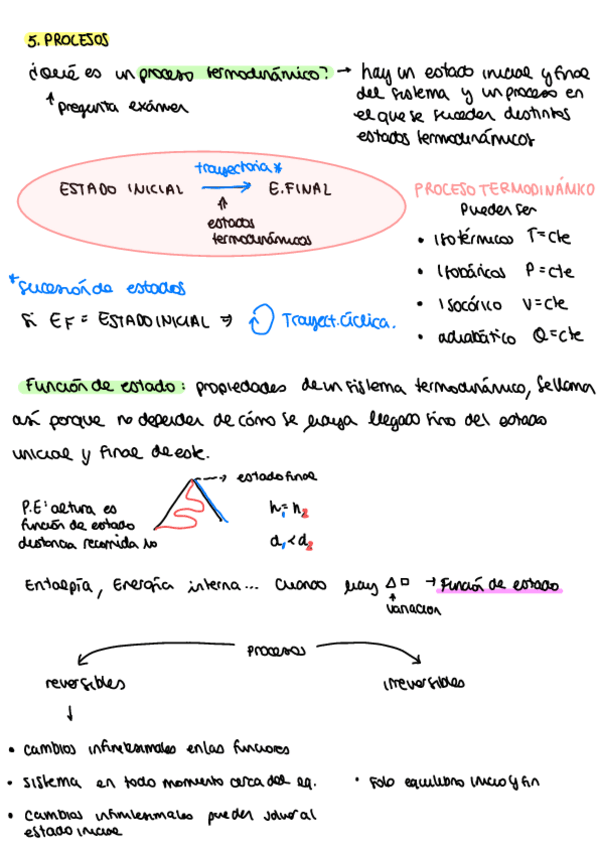 5. PROCESOS
¿Qué es un proceso termodinámico? → hay un estado inicial y final
del sistema y un proceso en
el que se suceden distintos
estados termodinámicos
↑ pregunta exámen
trayectoria*
ESTADO INICIAL → E.FINAL
↑
estados
termodinámicos
PROCESO TERMODINÁMICO
Pueden ser
• Isotérmicos T=cte
• Isobáricos P=cte
• Isocórico V=cte
• adiabático Q=cte
*Sucesión de estados
Si EF = ESTADO INICIAL ⇒ Trayect. Cíclica.
Función de estado: propiedades de un sistema termodinámico, se llama
así porque no depender de cómo se haya llegado sino del estado
inicial y final de este.
--→ estado final
P.E: altura es
función de estado
distancia recorrida no
h₁=h₂
d₁<d₂
Entalpía, Energía interna... Cuando hay Δ□ → Función de estado
↑
variación
procesos
reversibles
irreversibles
↓
• cambios infinitesimales en las funciones
• sistema en todo momento cerca del eq.
• solo equilibrio inicio y fin
• cambios infinitesimales pueden volver al
estado inicial